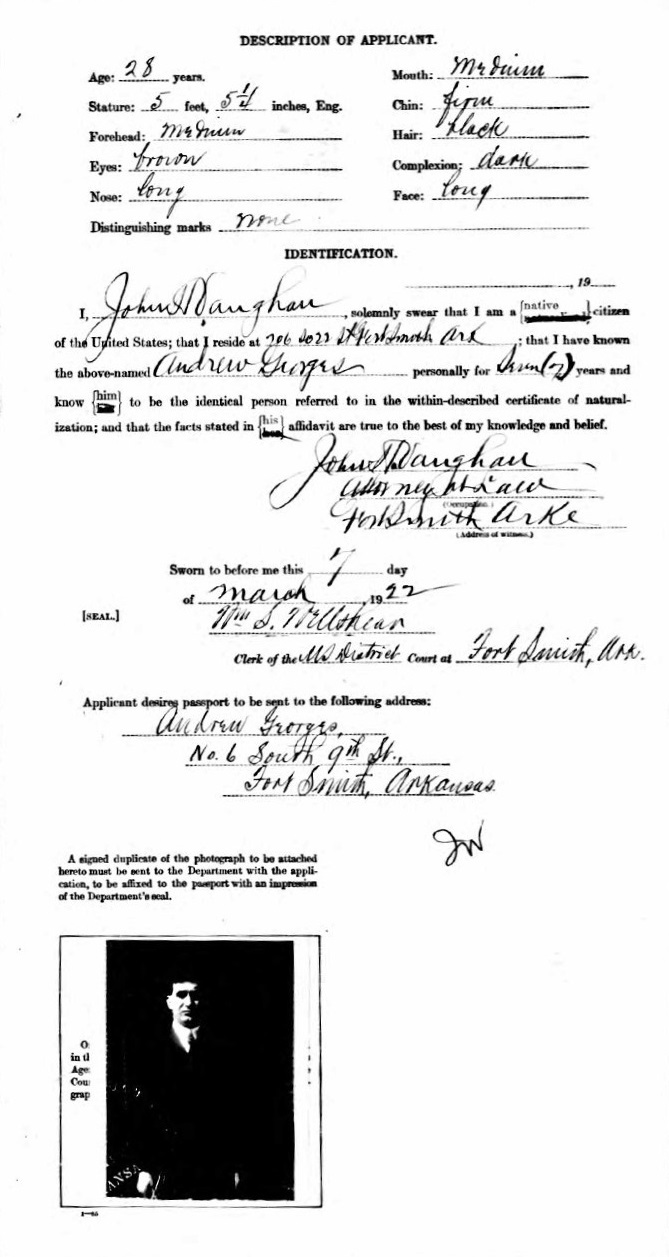 DESCRIPTION OF APPLICANT.
Age: 28 years. Mouth: Medium
Stature: 5 feet, 5 1/4 inches, Eng. Chin: firm
Forehead: Medium Hair: black
Eyes: brown Complexion: dark
Nose: long Face: long
Distinguishing marks none
IDENTIFICATION.
, 19
I, John Vaughan, solemnly swear that I am a {native} citizen
of the United States; that I reside at 706 So 22 St Fort Smith Ark; that I have known
the above-named Andrew Georges personally for Seven (7) years and
know {him} to be the identical person referred to in the within-described certificate of natural-
ization; and that the facts stated in {his} affidavit are true to the best of my knowledge and belief.
John Vaughan
Attorney at Law
(Occupation.)
Fort Smith Arke
(Address of witness.)
Sworn to before me this 7 day
of March, 1922
[SEAL.] Wm S. Wellshear
Clerk of the US District Court at Fort Smith, Ark.
Applicant desires passport to be sent to the following address:
Andrew Georges,
No. 6 South 9th St.,
Fort Smith, Arkansas.
JW
A signed duplicate of the photograph to be attached
hereto must be sent to the Department with the appli-
cation, to be affixed to the passport with an impression
of the Department's seal.
O
in tl
Age
Cou
grap
ANSA